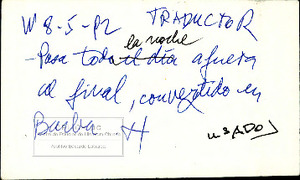 W 8-5-92 TRADUCTOR
la noche
- Pasa toda el día afuera
al final, convertido en
Barba H
USADO